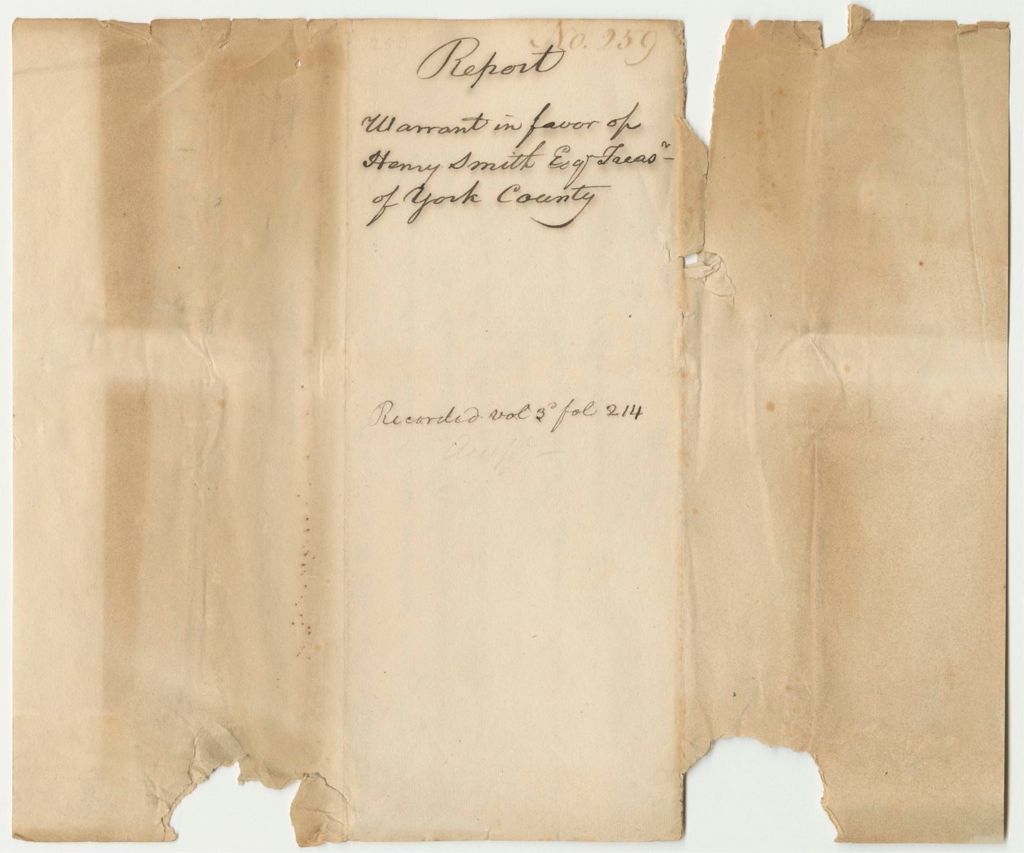 No. 259
Report
Warrant in favor of
Henry Smith Esqr Treasr
of York County
Recorded vol 3d fol 214